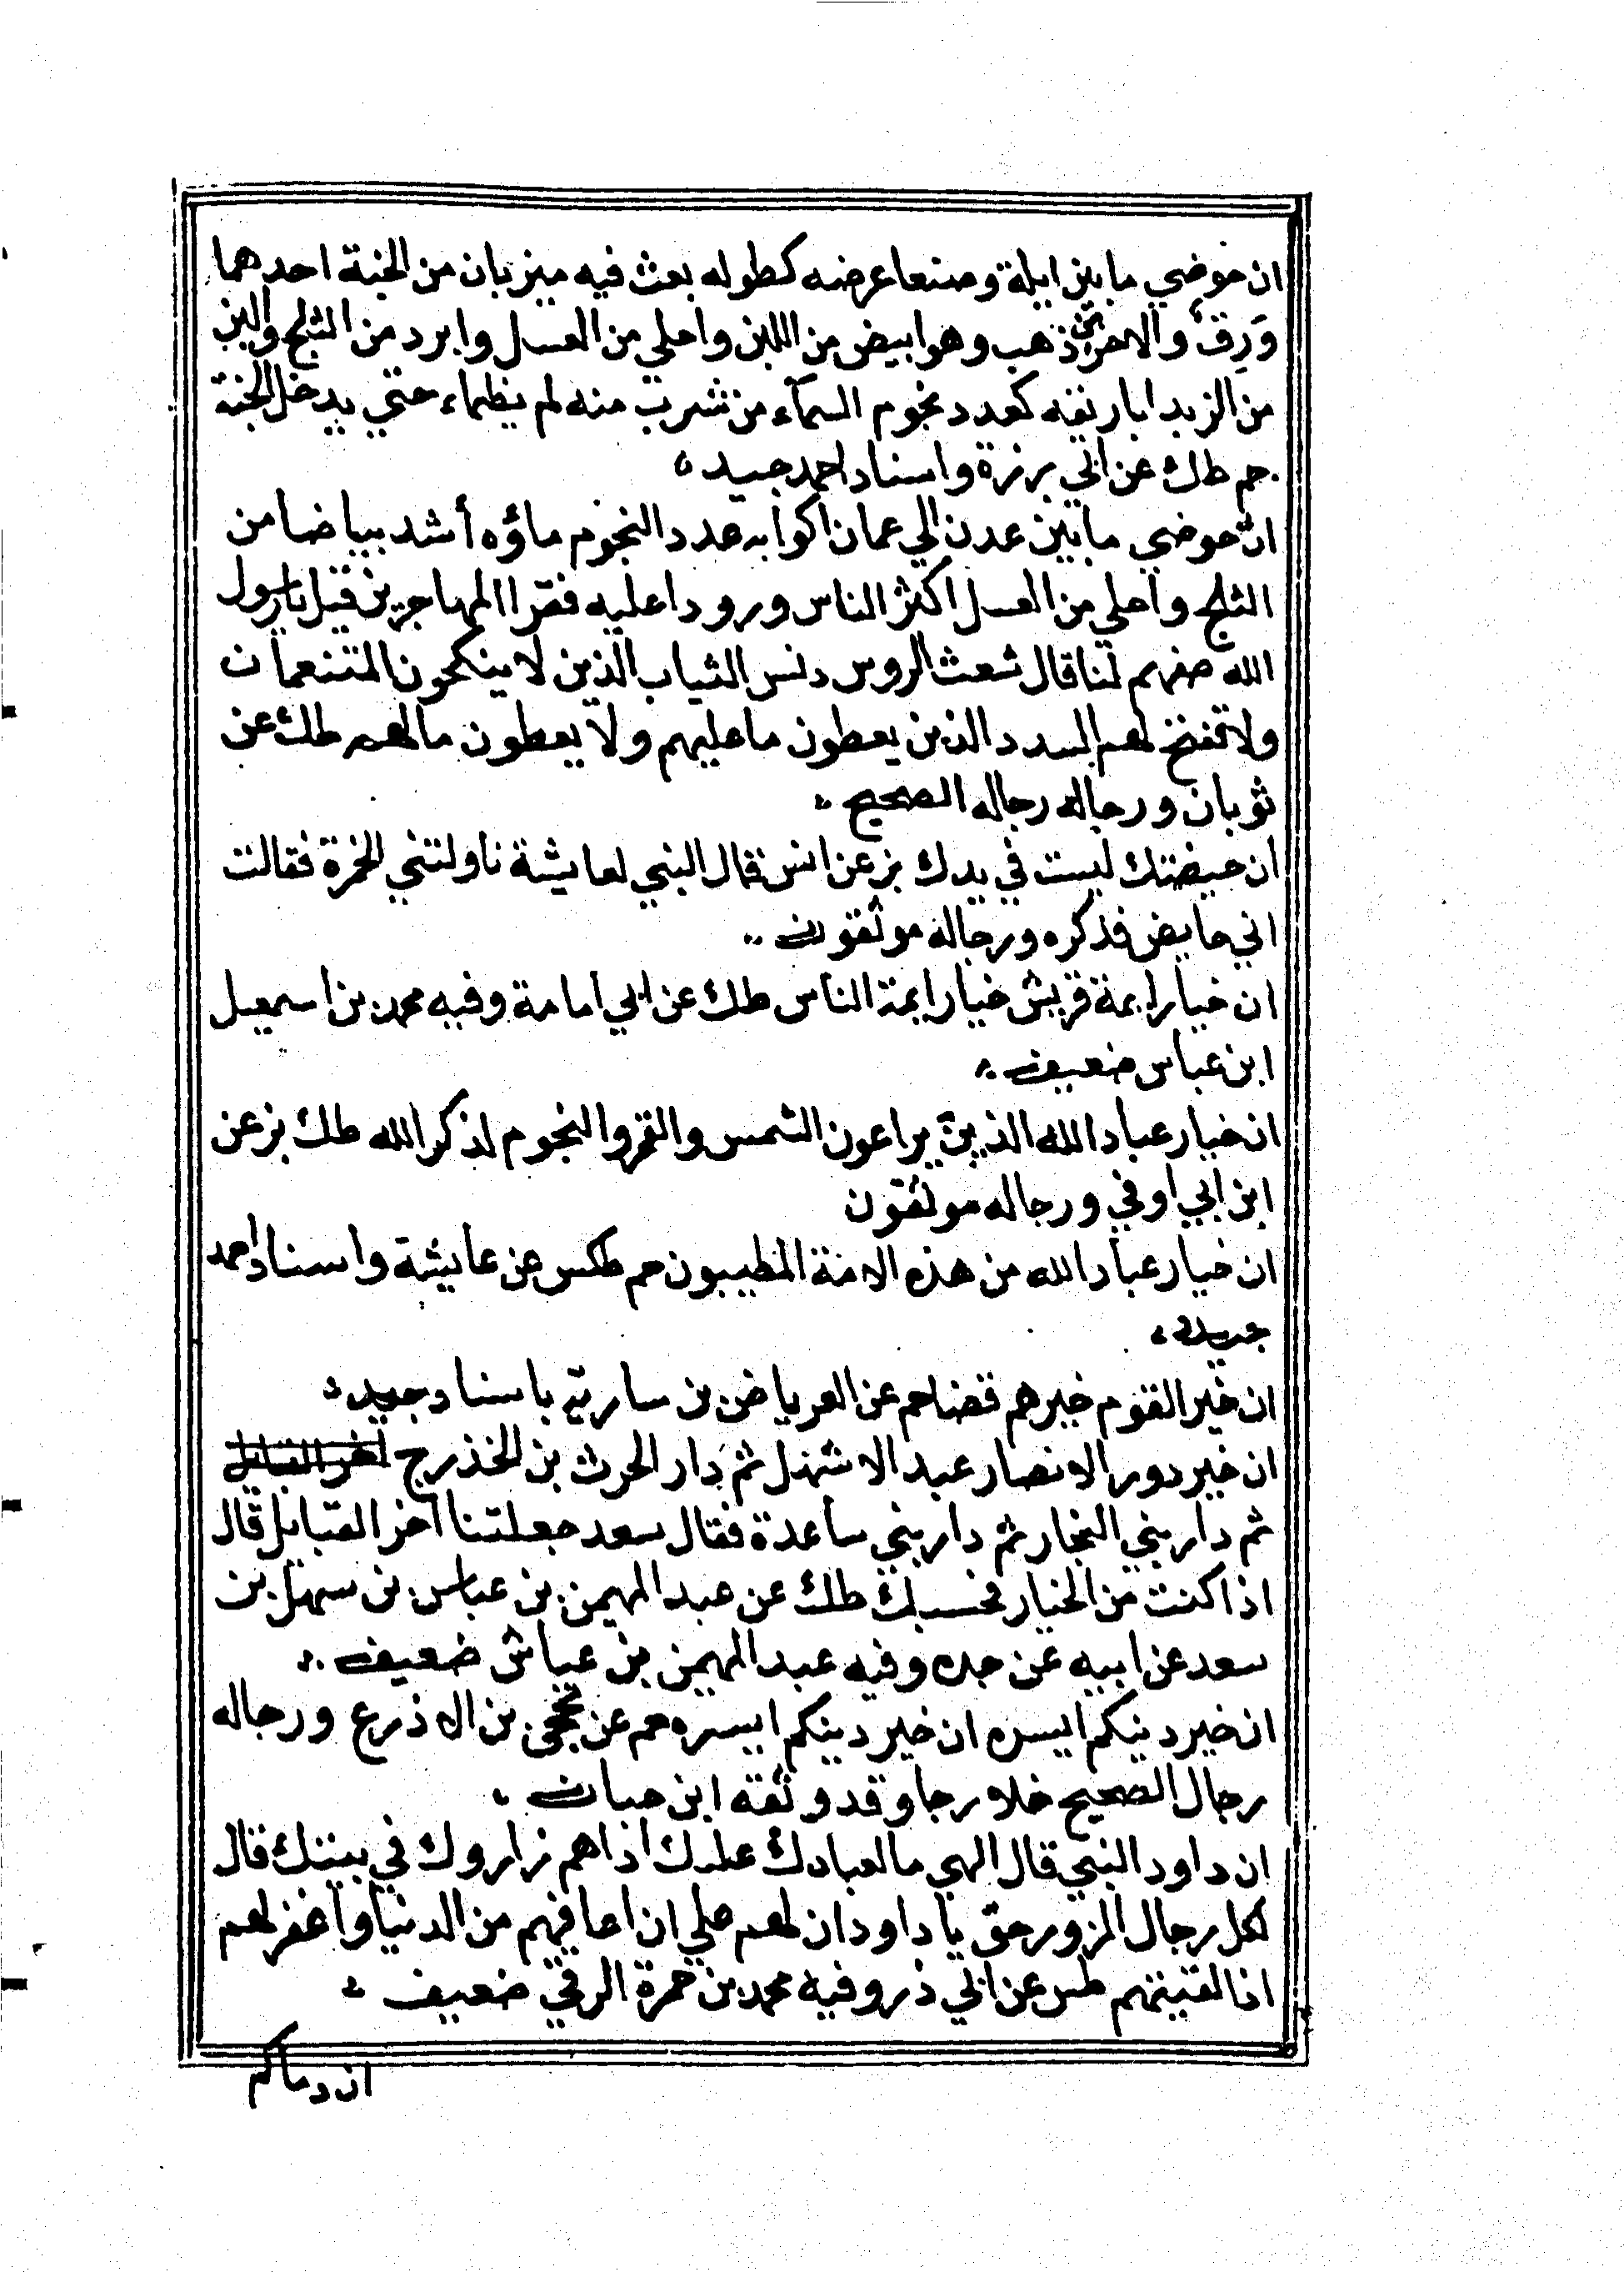 ان حوضي ما بين ايلة وصنعا عرضه كطوله بعث فيه ميزبان من الجنة احدهما
وَرِق والاخر من ذهب وهو ابيض من اللبن واحلي من العسل وابرد من الثلج والين
من الزبد اباريقه كعدد نجوم السمآء من شرب منه لم يظماء حتي يدخل الجنة
حم طك عن ابي برزة واسناد احمد جيد
ان حوضي ما بين عدن الي عمان اكوابه عدد النجوم ماؤه أشد بياضا من
الثلج واحلي من العسل اكثر الناس ورودا عليه فقرا المهاجرين قيل يا رسول
الله صفهم لنا قال شعث الروس دنس الثياب الذين لا ينكحون المتنعمات
ولا تفتح لهم السدد الذين يعطون ما عليهم ولا يعطون ما لهم طك عن
ثوبان ورجاله رجاله الصحيح
ان حيضتك ليست في يدك بز عن انس قال النبي لعايشة ناولتني الخمرة فقالت
اني حايض فذكره ورجاله موثقون
ان خيار ايمة قريش خيار ايمة الناس طك عن ابي امامة وفيه محمد بن اسمعيل
ابن عباس ضعيف
ان خيار عباد الله الذين يراعون الشمس والقمر والنجوم لذكر الله طك بز عن
ابن ابي اوفي ورجاله موثقون
ان خيار عباد الله من هذه الامة المطيبون حم طكس عن عايشة واسناد احمد
جيد
ان خير القوم خيرهم قضا حم عن العرباض بن سارية باسناد جيد
ان خير دور الانصار عبد الاشهل ثم دار الحرث بن الخذرج اخر القبايل
ثم دار بني النجار ثم دار بني ساعدة فقال سعد جعلتنا اخر القبايل قال
اذا كنت من الخيار فحسبك طك عن عبد المهيمن بن عباس بن سهل بن
سعد عن ابيه عن جده وفيه عبد المهيمن بن عياش ضعيف
ان خير دينكم ايسره ان خير دينكم ايسره حم عن محجن بن الاذرع ورجاله
رجال الصحيح خلا رجا وقد وثقه ابن حبان
ان داود النبي قال الهي ما لعبادك عليك اذا هم زاروك في بيتك قال
لكل رجال المزور حق يا داود ان لهم علي ان اعافيهم من الدنيا واغفر لهم
اذا لقيتهم طس عن ابي ذر وفيه محمد بن حمزة الرقي ضعيف
ان دماكم